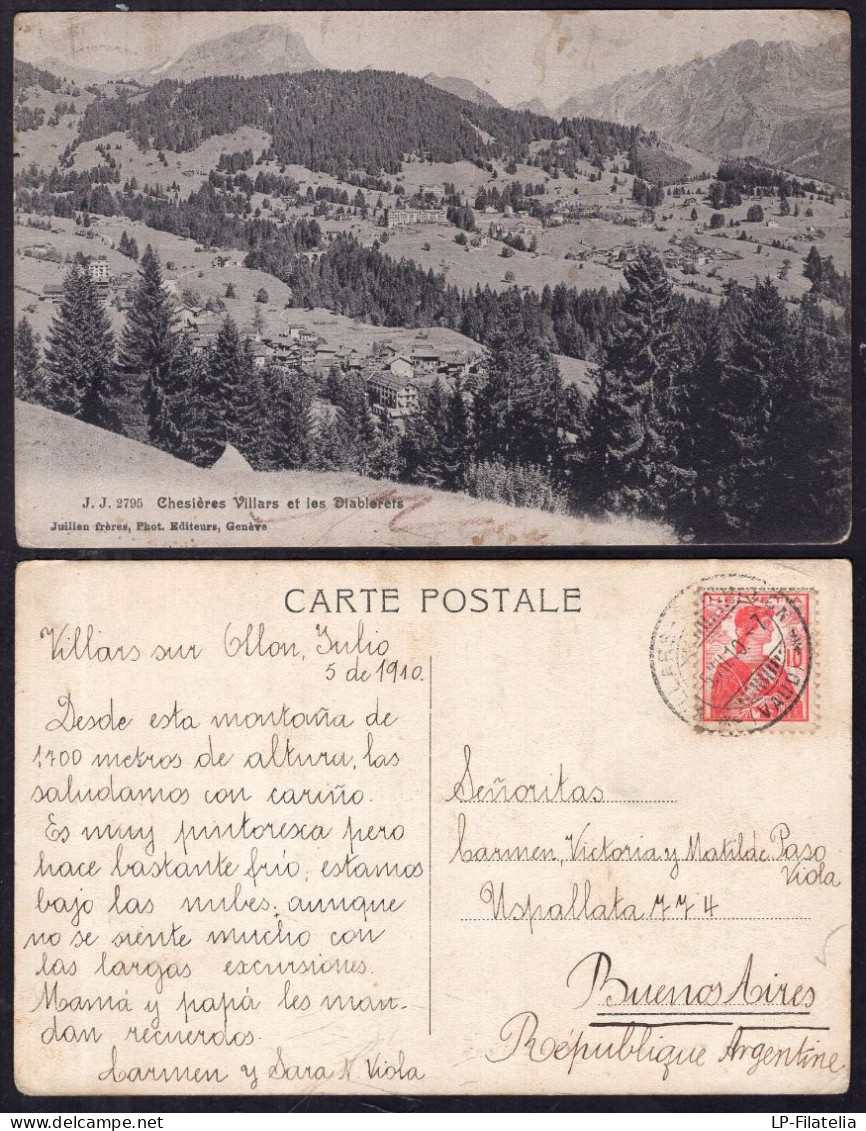 J. J. 2795 Chesières Villars et les Diablerets
Jullien frères, Phot. Editeurs, Genève
CARTE POSTALE
Villars sur Ollon, Julio
5 de 1910.
Desde esta montaña de
1700 metros de altura, las
saludamos con cariño.
Es muy pintoresca pero
hace bastante frío, estamos
bajo las nubes, aunque
no se siente mucho con
las largas excursiones.
Mamá y papá les man-
dan recuerdos.
Carmen y Sara N Viola
HELVETIA
10
VILLARS
(VAUD)
Señoritas
Carmen, Victoria y Matilde Paso
Viola
Uspallata 774
Buenos Aires
République Argentine
LP-Filatelia